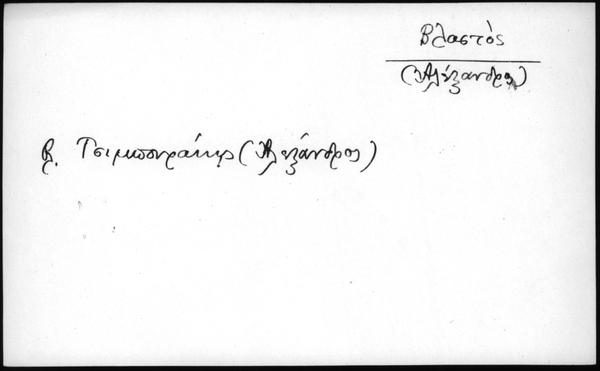 Βλαστὸς
(Ἀλέξανδρος)
β. Τσιμπουράκης (Ἀλέξάνδρος)